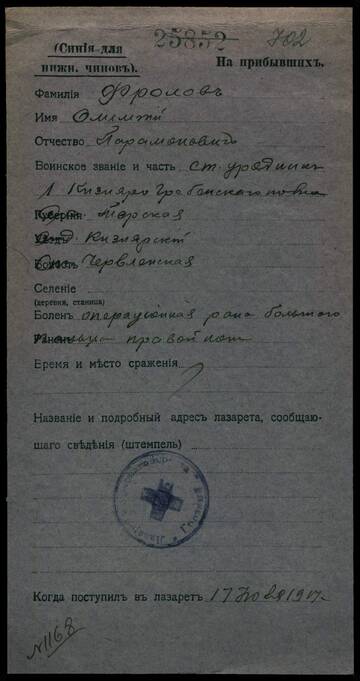 25852 702
(Синія для
нижн. чиновъ).
На прибывшихъ.
Фамилія Фроловъ
Имя
Отчество Парамоновичъ
Воинское званіе и часть ст. урядникъ
1 Кизляро Гребенского полка
Губернія Терская
Уѣздъ Кизлярскій
Волость Червленская
Селеніе
(деревня, станица)
Боленъ операціонная рана большого
Раненъ пальца правой ноги
Время и мѣсто сраженія
Названіе и подробный адресъ лазарета, сообщаю-
щаго свѣдѣнія (штемпель)
Когда поступилъ въ лазаретъ 17 Ноя 1917.
№1168